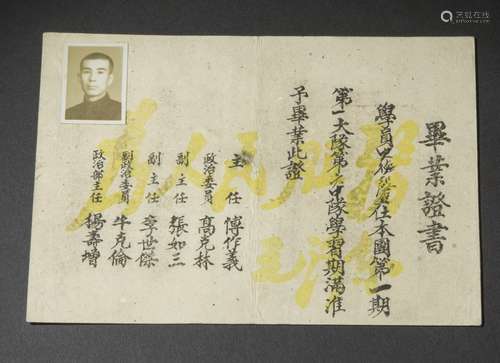 畢業證書
學員在本團第一期
第一大隊第中隊學習期滿准
予畢業此證
主任 傅作義
政治委員 高克林
副主任 張如三
副主任 李世傑
副政治委員 牛克倫
政治部主任 楊壽增